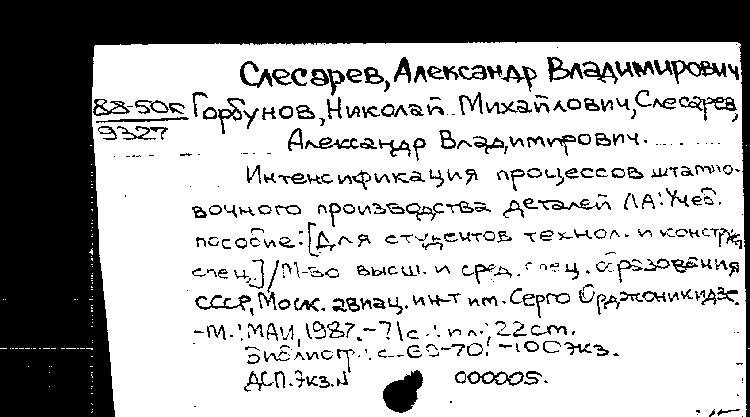 Слесарев, Александр Владимирович
88-50к Горбунов, Николай Михайлович, Слесарев,
9327 Александр Владимирович.
Интенсификация процессов штампо-
вочного производства деталей ЛА: Учеб.
пособие: [Для студентов технол. и конструк.
спец.] / М-во высш. и сред. спец. образования
СССР, Моск. авиац. ин-т им. Серго Орджоникидзе.
-М.: МАИ, 1987.-71 с.: ил.; 22 см.
Библиогр.: с. 69-70. -100 экз.
ДСП. Экз. N 000005.